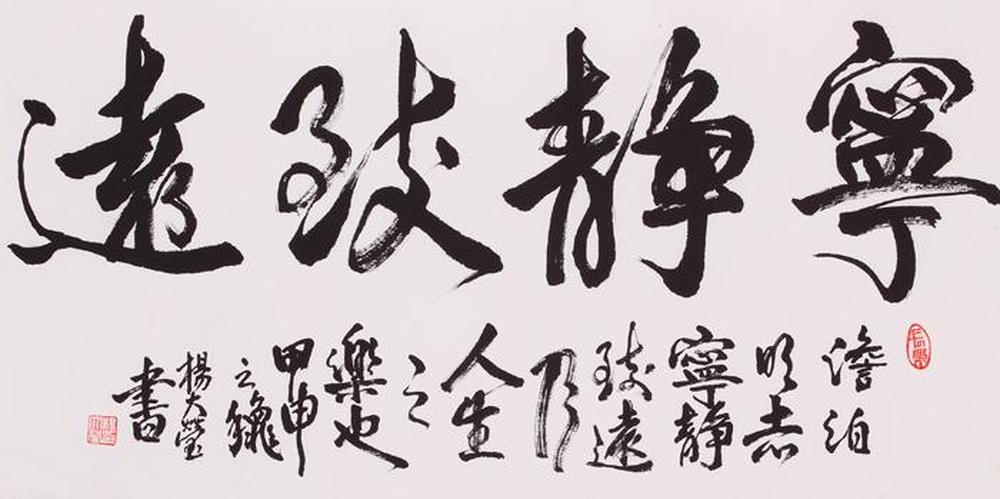 寧静致遠
澹泊
明志
寧静
致遠
乃
人生
之
樂也
甲申
之穐
楊大瑩
書